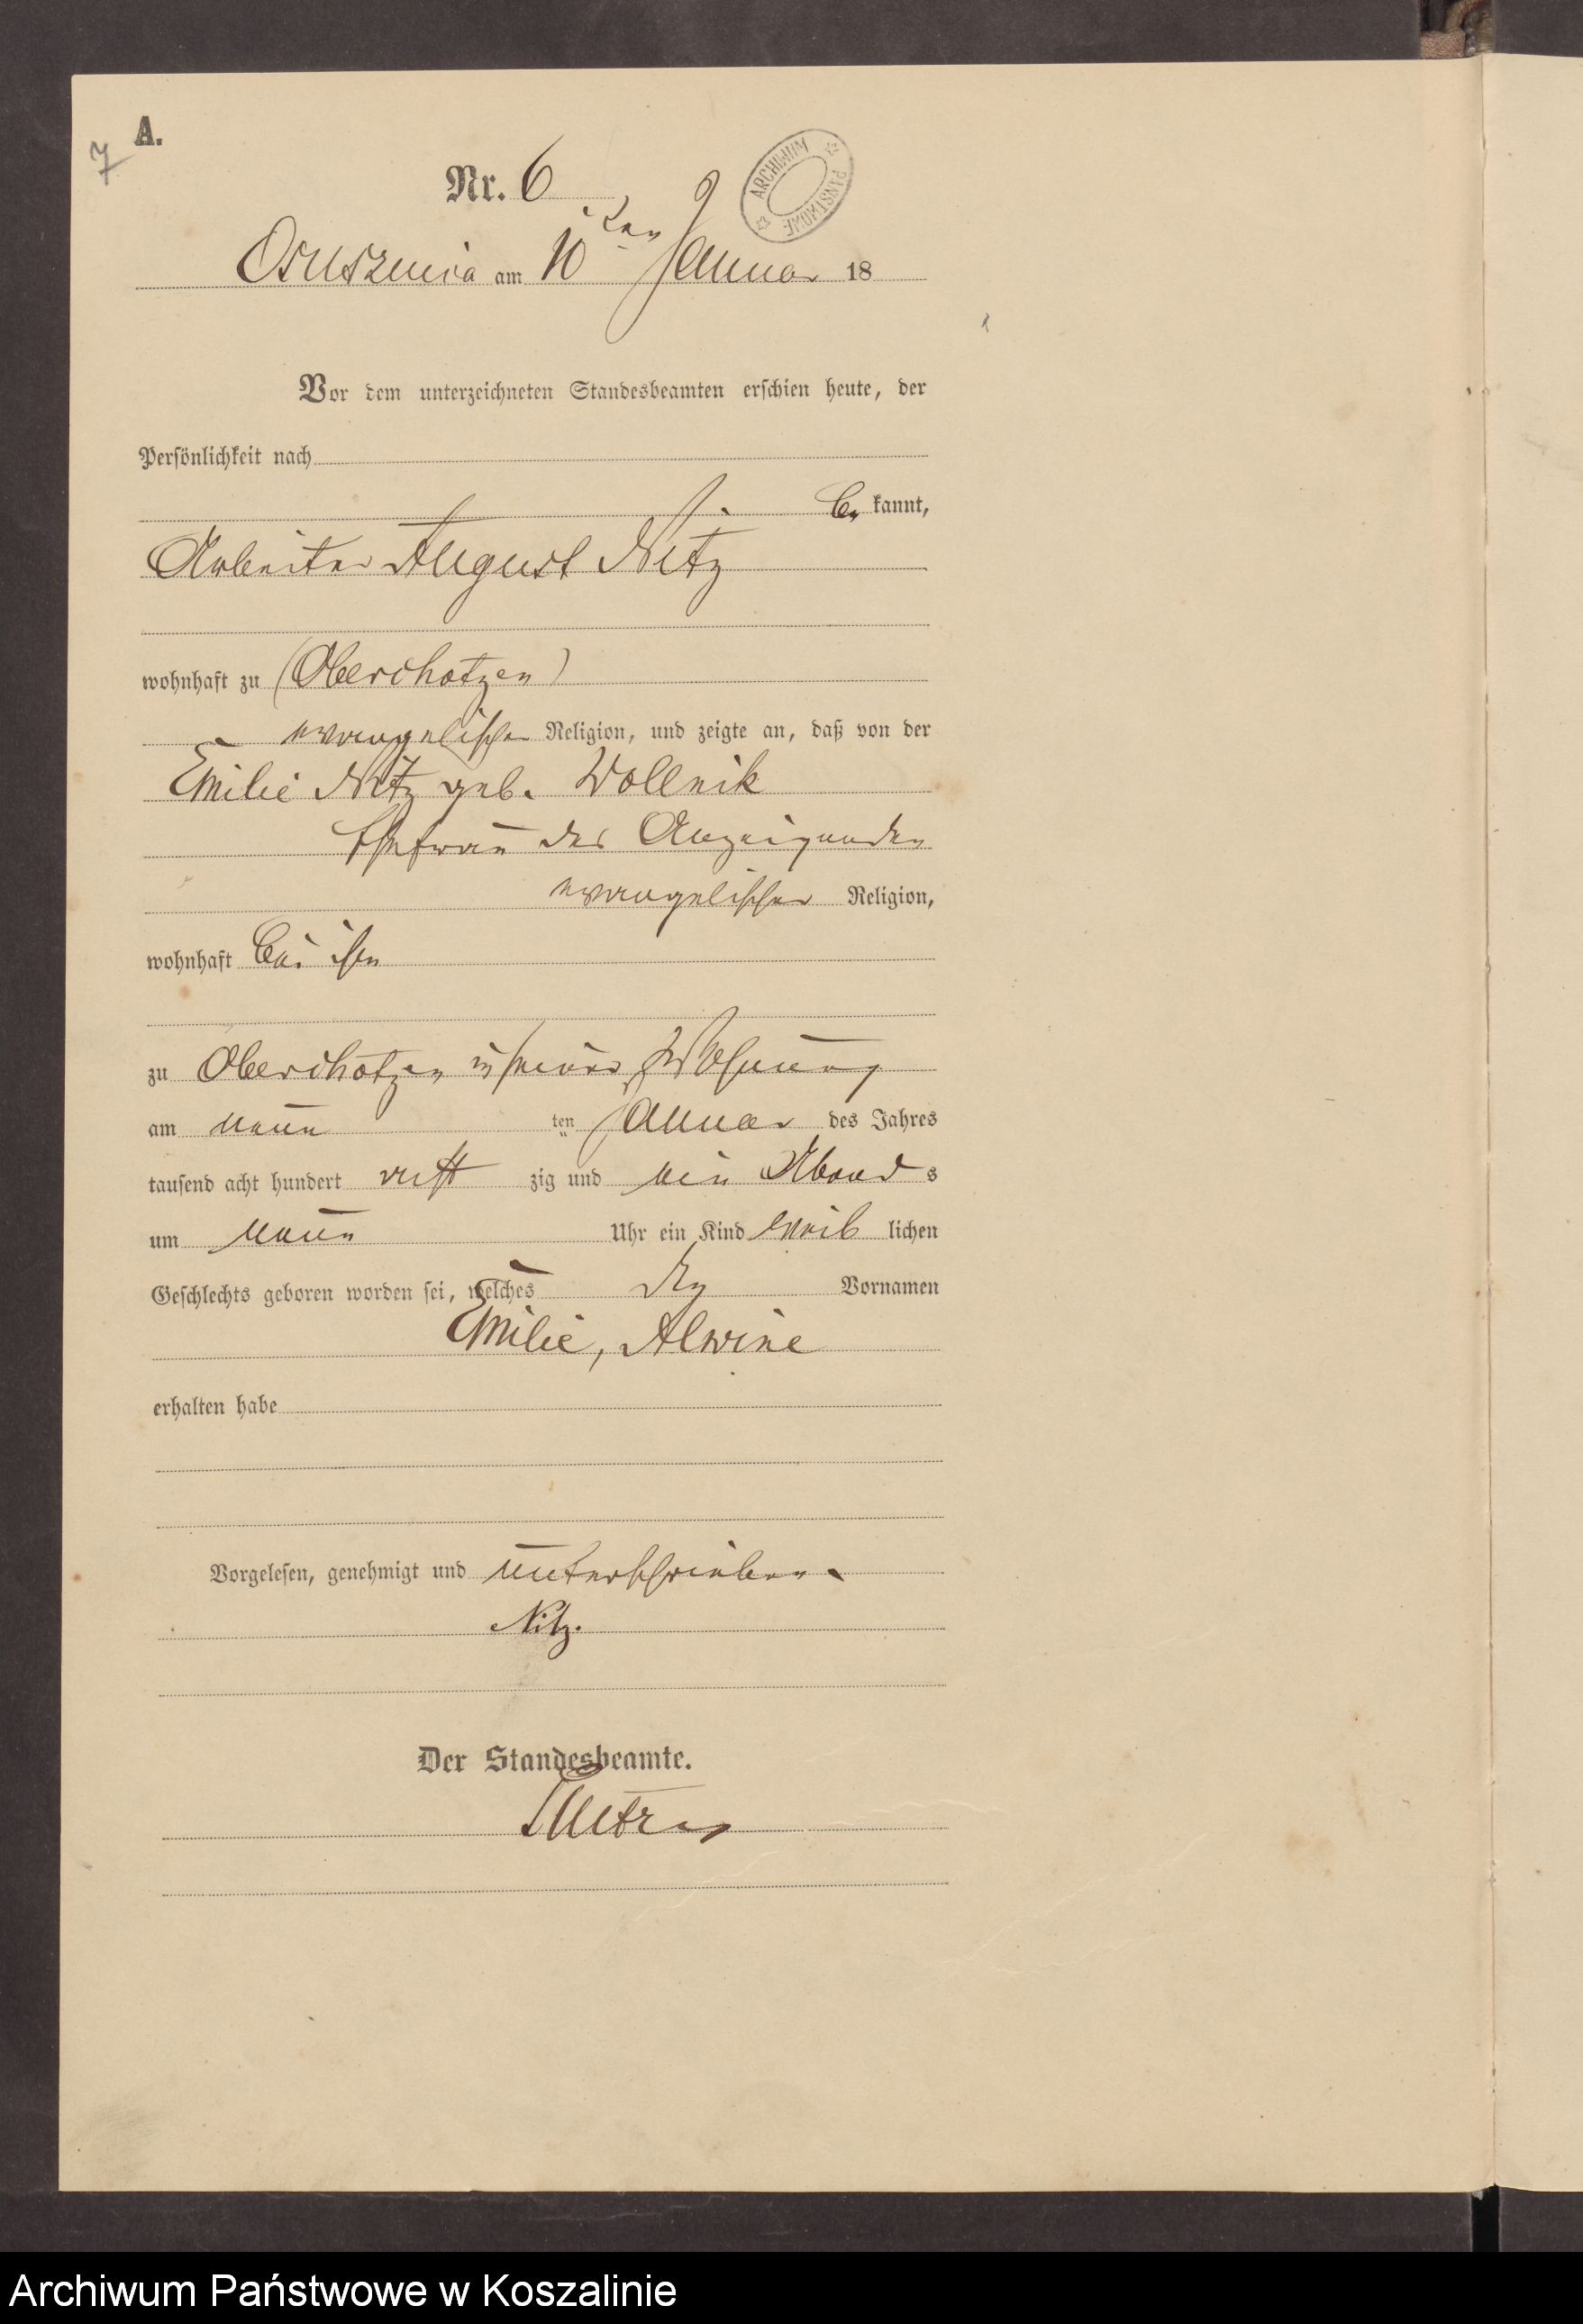 A.
7
Nr. 6
ARCHIWUM PAŃSTWOWE
Osusznica am 10ten Januar 18
Vor dem unterzeichneten Standesbeamten erschien heute, der
Persönlichkeit nach
be kannt,
Arbeiter August Nitz
wohnhaft zu (Oberchotzen)
evangelischer Religion, und zeigte an, daß von der
Emilie Nitz geb. Wollnik
Ehefrau des Anzeigenden
evangelischer Religion,
wohnhaft bei ihm
zu Oberchotzen in seiner Wohnung
am neun ten Januar des Jahres
tausend acht hundert acht zig und ein Abend s
um neun Uhr ein Kind weib lichen
Geschlechts geboren worden sei, welches die Vornamen
Emilie, Alwine
erhalten habe
Vorgelesen, genehmigt und unterschrieben.
Nitz.
Der Standesbeamte.
Archiwum Państwowe w Koszalinie